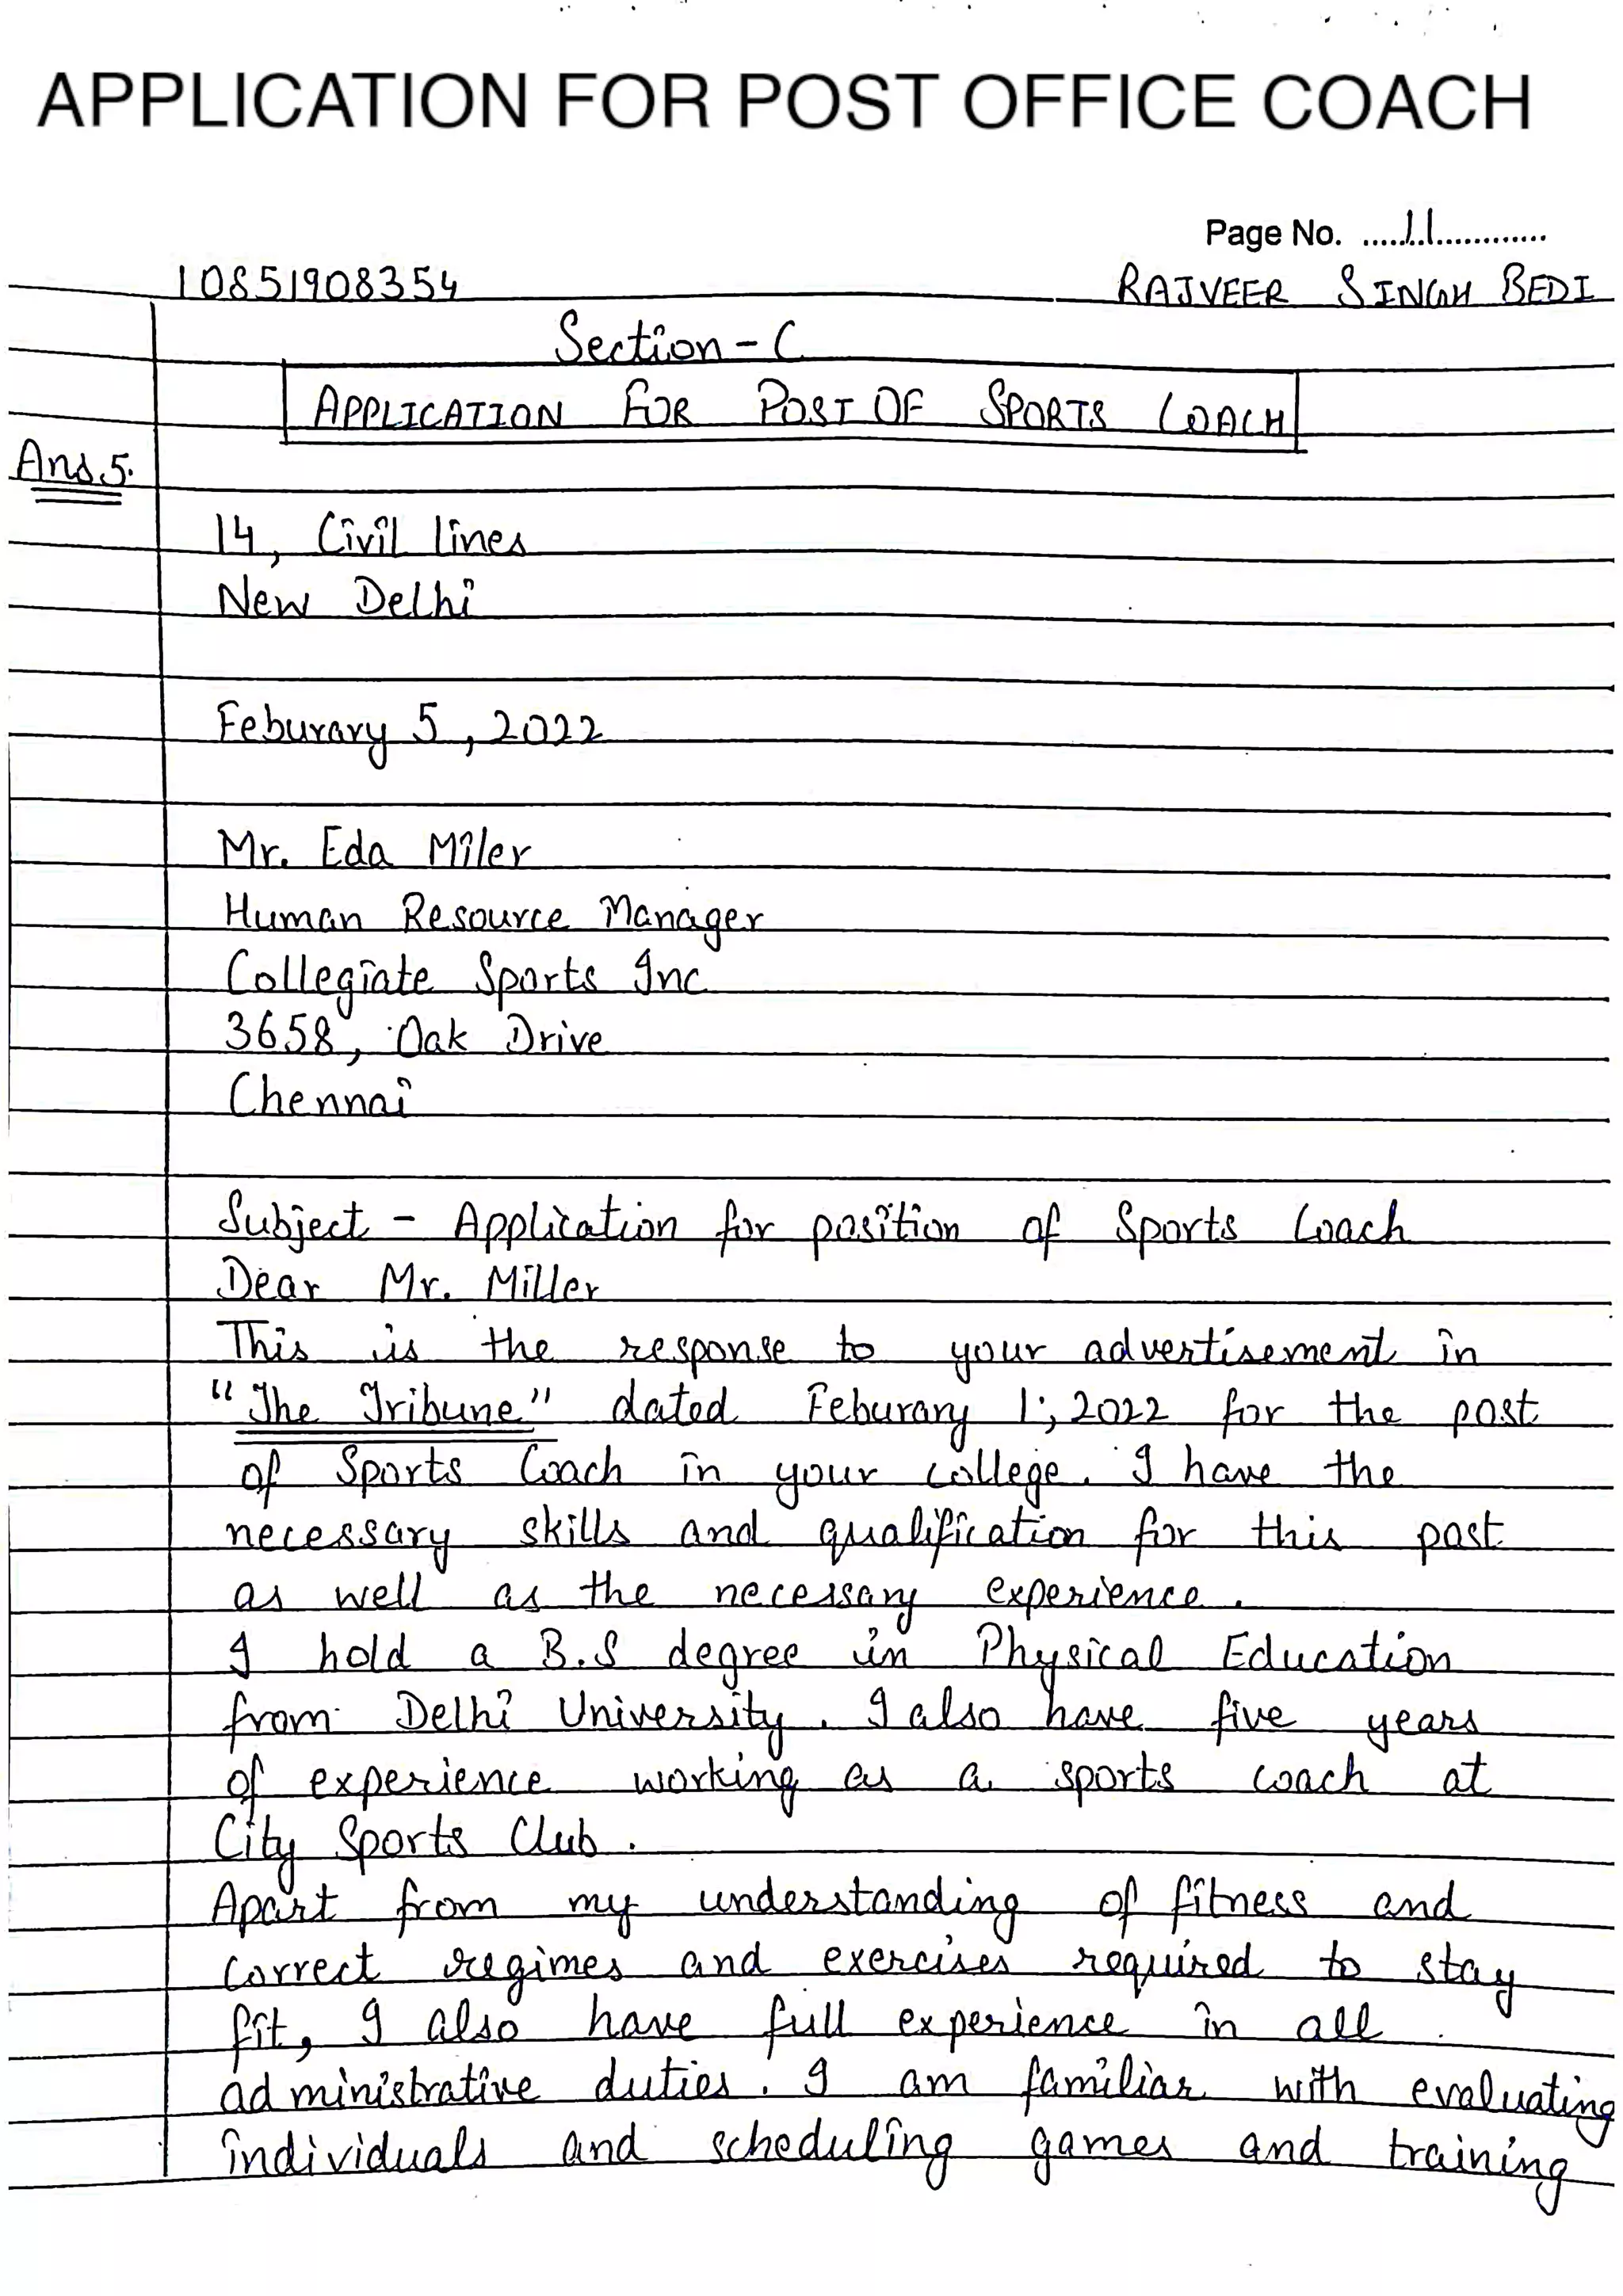 APPLICATION FOR POST OFFICE COACH
Page No. .....11.............
10851908354 RAJVEER SINGH BEDI
Section - C
APPLICATION FOR POST OF SPORTS COACH
Ans 5.
14, Civil lines
New Delhi
Feburary 5, 2022
Mr. Eda Miler
Human Resource Manager
Collegiate Sports Inc
3658, Oak Drive
Chennai
Subject - Application for position of Sports Coach
Dear Mr. Miller
This is the response to your advertisement in
"The Tribune" dated Feburary 1, 2022 for the post
of Sports Coach in your college. I have the
necessary skills and qualification for this post
as well as the necessary experience.
I hold a B.S degree in Physical Education
from Delhi University. I also have five years
of experience working as a sports coach at
City Sports Club.
Apart from my understanding of fitness and
correct regimes and exercises required to stay
fit, I also have full experience in all
administrative duties. I am familiar with evaluating
individuals and scheduling games and training